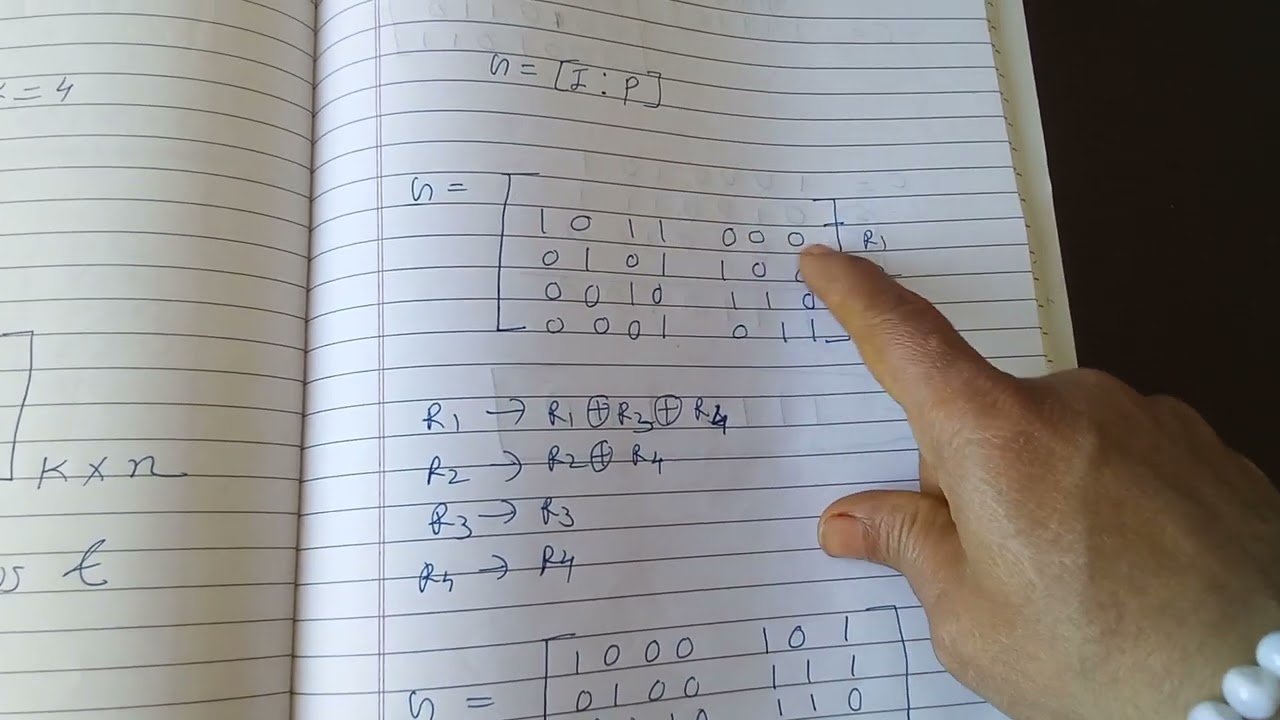 K = 4
K × n
t
G = [I : P]
G =
1 0 1 1 0 0 0 R1
0 1 0 1 1 0
0 0 1 0 1 1 0
0 0 0 1 0 1 1
R1 → R1 ⊕ R3 ⊕ R4
R2 → R2 ⊕ R4
R3 → R3
R4 → R4
G =
1 0 0 0 1 0 1
0 1 0 0 1 1 1
1 1 0